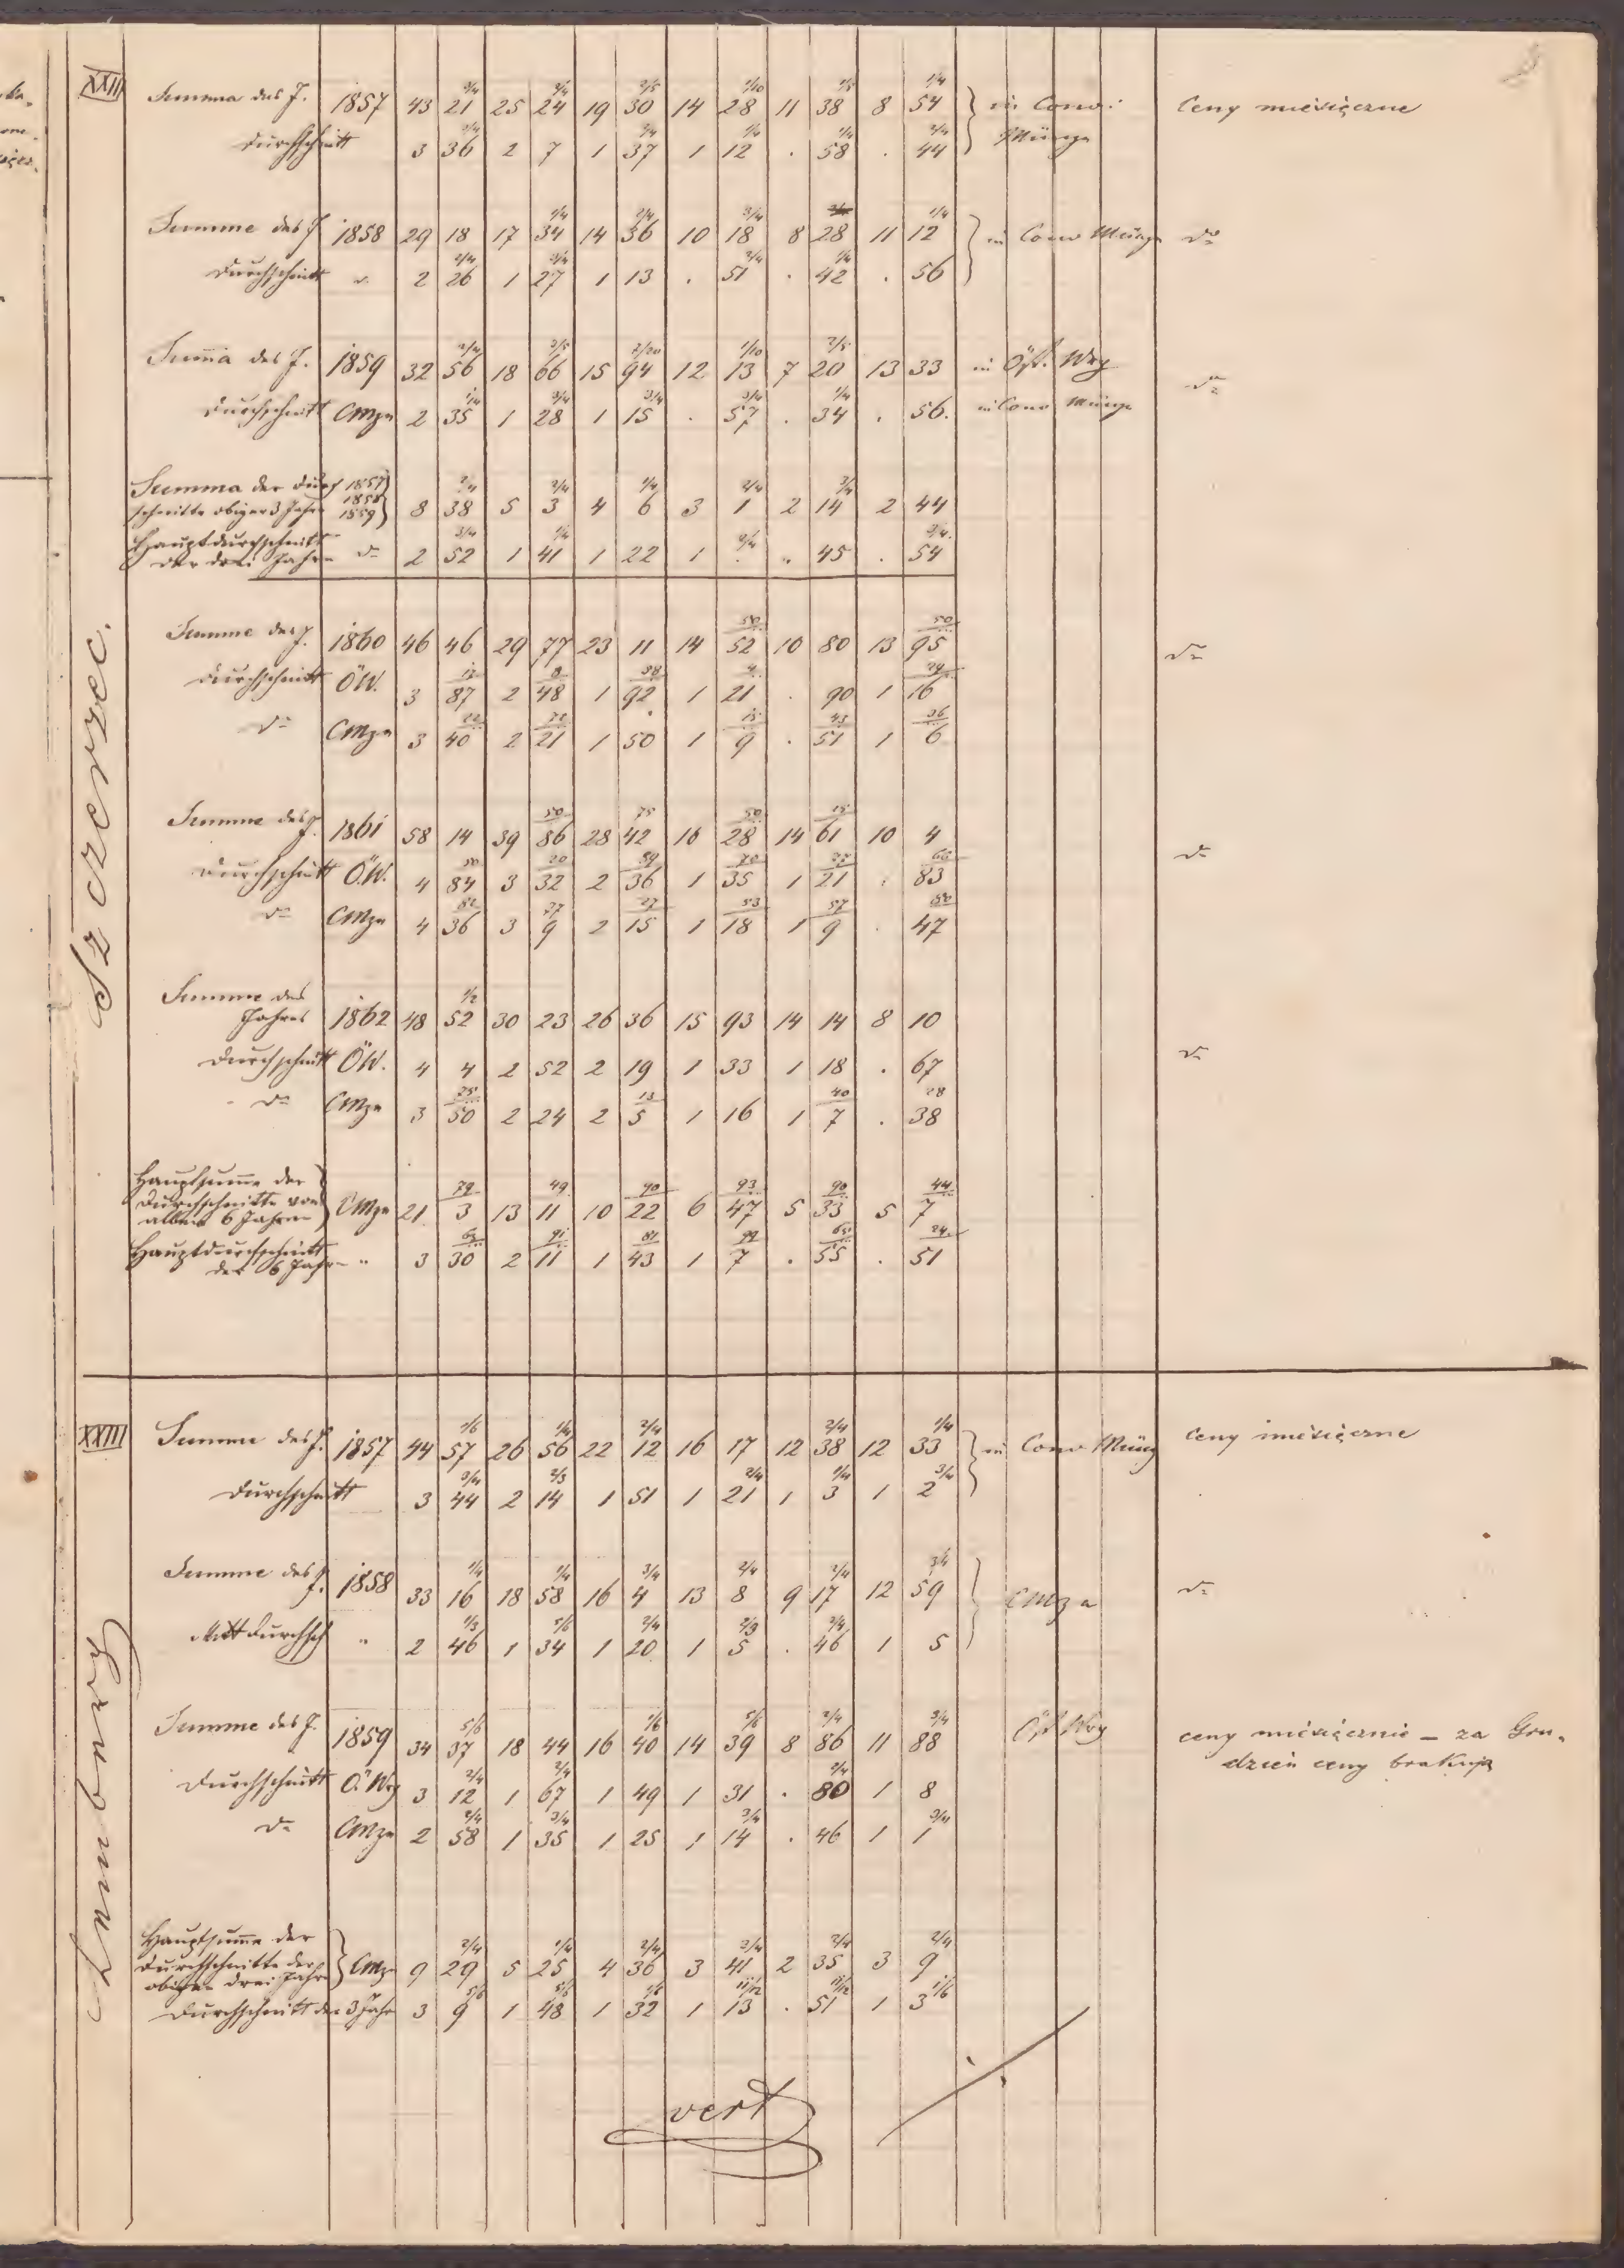 XXII Summa des J. 1857 43 21 2/4 25 24 2/4 19 30 2/5 14 28 1/10 11 38 1/5 8 54 1/4 in Conv: Ceny miesięczne
Durchschnitt 3 36 2/4 2 7 1 37 2/4 1 12 1/4 . 58 1/4 . 44 2/4 Münze
Summe des J 1858 29 18 17 34 1/4 14 36 2/4 10 18 3/4 8 28 11 12 1/4 in Conv Münze do
Durchschnitt " 2 26 2/4 1 27 3/4 1 13 . 51 2/4 . 42 1/4 . 56
Szczerzec.
Suma des J. 1859 32 56 2/4 18 66 2/5 15 94 7/20 12 13 1/10 7 20 2/5 13 33 in Öst. Wrg do
Durchschnitt CMze 2 35 1/4 1 28 3/4 1 15 3/4 . 57 3/4 . 34 1/4 . 56. in Conv Münze
Summa der Durch 1857
schnitte obiger 3 Jahre 1858 1859 8 38 2/4 5 3 2/4 4 6 1/4 3 1 2/4 2 14 3/4 2 44
Hauptdurchschnitt
der drei Jahre do 2 52 3/4 1 41 1/4 1 22 1 . 2/4 . 45 . 54 3/4
Summe des J. 1860 46 46 29 77 23 11 14 52 50 10 80 13 95 50 do
Durchschnitt ÖW. 3 87 17 2 48 8 1 92 58 1 21 4 . 90 1 16 29
do CMze 3 40 22 2 21 72 1 50 1 9 15 . 51 43 1 6 36
Summe des J. 1861 58 14 39 86 50 28 42 75 16 28 50 14 61 15 10 4 do
Durchschnitt Ö.W. 4 84 50 3 32 20 2 36 89 1 35 70 1 21 75 . 83 66
do CMze 4 36 82 3 9 37 2 15 27 1 18 53 1 9 57 . 47 80
Summe des
Jahres 1862 48 52 1/2 30 23 26 36 15 93 14 14 8 10
Durchschnitt ÖW. 4 4 2 52 2 19 1 33 1 18 . 67 do
do CMze 3 50 25 2 24 2 5 13 1 16 1 7 40 . 38 28
Hauptsumme der
Durchschnitte von
allen 6 Jahren CMze 21 3 79 13 11 49 10 22 90 6 47 93 5 33 90 5 7 44
Hauptdurchschnitt
der 6 Jahre " 3 30 63 2 11 91 1 43 81 1 7 99 . 55 65 . 51 24
XXIII Summe des J. 1857 44 57 1/5 26 56 1/4 22 12 2/4 16 17 12 38 2/4 12 33 1/4 in Conv Münz Ceny miesięczne
Durchschnitt 3 44 3/4 2 14 2/3 1 51 1 21 2/4 1 3 1/4 1 2 3/4
Lemberg
Summe des J. 1858 33 16 1/4 18 58 1/4 16 4 3/4 13 8 2/4 9 17 2/4 12 59 3/4 CMze do
Durchsch " 2 46 1/3 1 34 5/6 1 20 2/4 1 5 2/3 . 46 2/4 1 5
Summe des J. 1859 34 37 5/6 18 44 16 40 1/6 14 39 5/6 8 86 2/4 11 88 3/4 Öst Wrg ceny miesięcznie – za Gru-
dzień ceny brakują
Durchschnitt Ö Wrg 3 12 2/4 1 67 2/4 1 49 1 31 . 80 2/4 1 8
do CMze 2 58 2/4 1 35 3/4 1 25 1 14 3/4 . 46 1 1 3/4
Hauptsumme der
Durchschnitte der
obigen drei Jahre CMze 9 29 2/4 5 25 1/4 4 36 2/4 3 41 3/4 2 35 3/4 3 9 2/4
Durchschnitt der 3 Jahre 3 9 5/6 1 48 5/6 1 32 1/6 1 13 11/12 . 51 11/12 1 3 1/6
vert